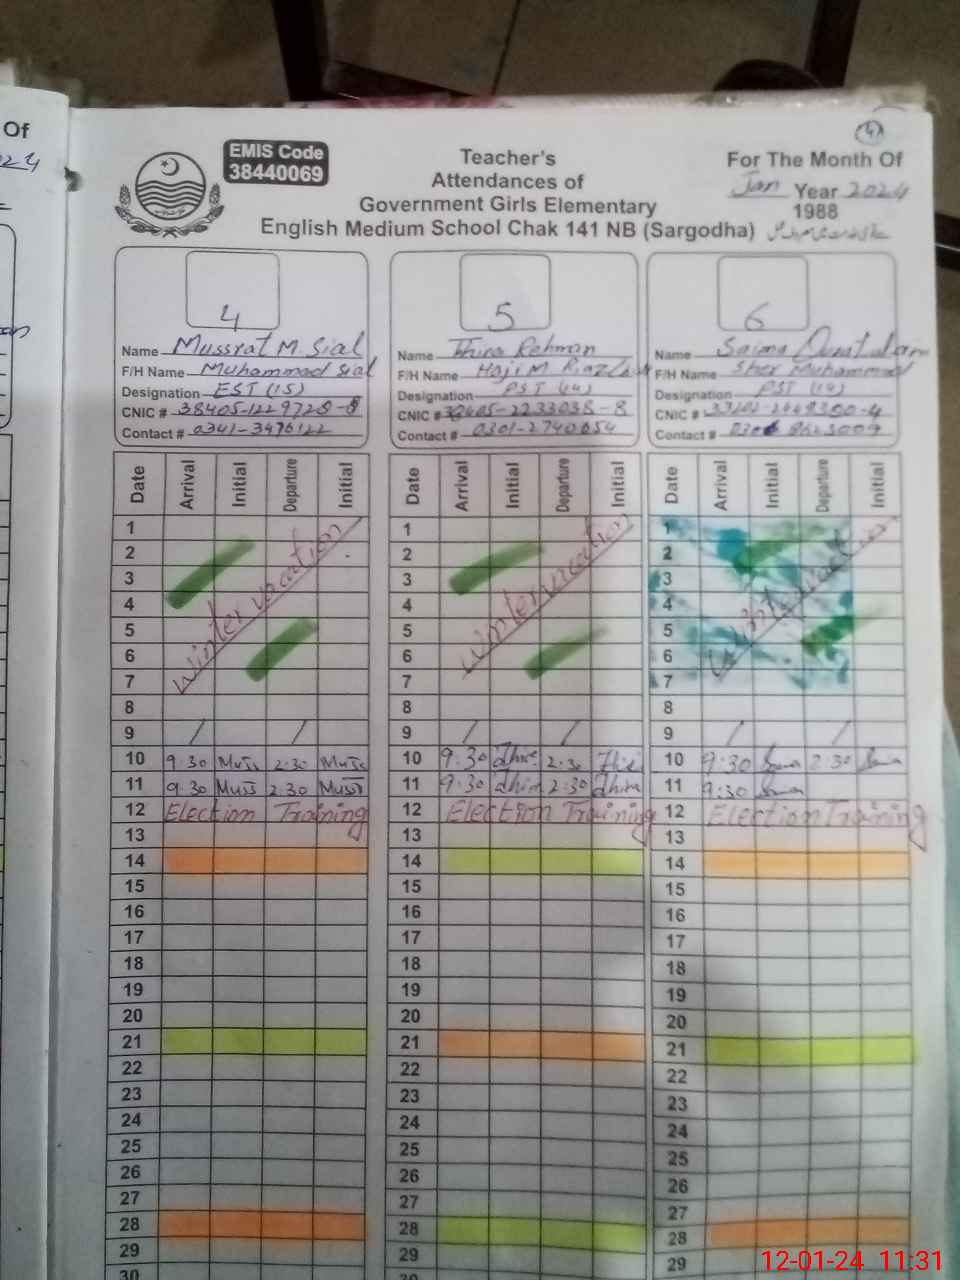 Of
EMIS Code
38440069
Teacher's
Attendances of
Government Girls Elementary
English Medium School Chak 141 NB (Sargodha)
4
For The Month Of
Jan Year 2024
1988
4
Name Mussrat M. Sial
F/H Name Muhammad Sial
Designation EST (15)
CNIC #
Contact # 0341-3476122
5
Name Rehman
F/H Name Haji M. Riaz
Designation PST (14)
CNIC # 38405-2233038-8
Contact # 0301-2740654
6
Name Saima
F/H Name Sher Muhammad
Designation PST (14)
CNIC #
Contact #
Date Arrival Initial Departure Initial
1
2
3
4
5
6
7
winter vacation
8
9 / /
10 9:30 Muss 2:30 Muss
11 9:30 Muss 2:30 Muss
12 Election Training
13
14
15
16
17
18
19
20
21
22
23
24
25
26
27
28
29
30
Date Arrival Initial Departure Initial
1
2
3
4
5
6
7
winter vacation
8
9 / /
10 9:30 2:30
11 9:30 2:30
12 Election Training
13
14
15
16
17
18
19
20
21
22
23
24
25
26
27
28
29
30
Date Arrival Initial Departure Initial
1
2
3
4
5
6
7
winter vacation
8
9 / /
10 9:30 2:30
11 9:30
12 Election Training
13
14
15
16
17
18
19
20
21
22
23
24
25
26
27
28
29
12-01-24 11:31